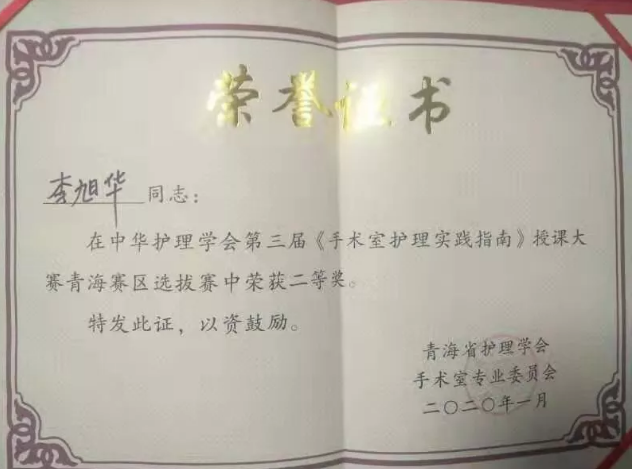 荣誉证书
李旭华 同志：
在中华护理学会第三届《手术室护理实践指南》授课大
赛青海赛区选拔赛中荣获二等奖。
特发此证，以资鼓励。
青海省护理学会
手术室专业委员会
二〇二〇年一月